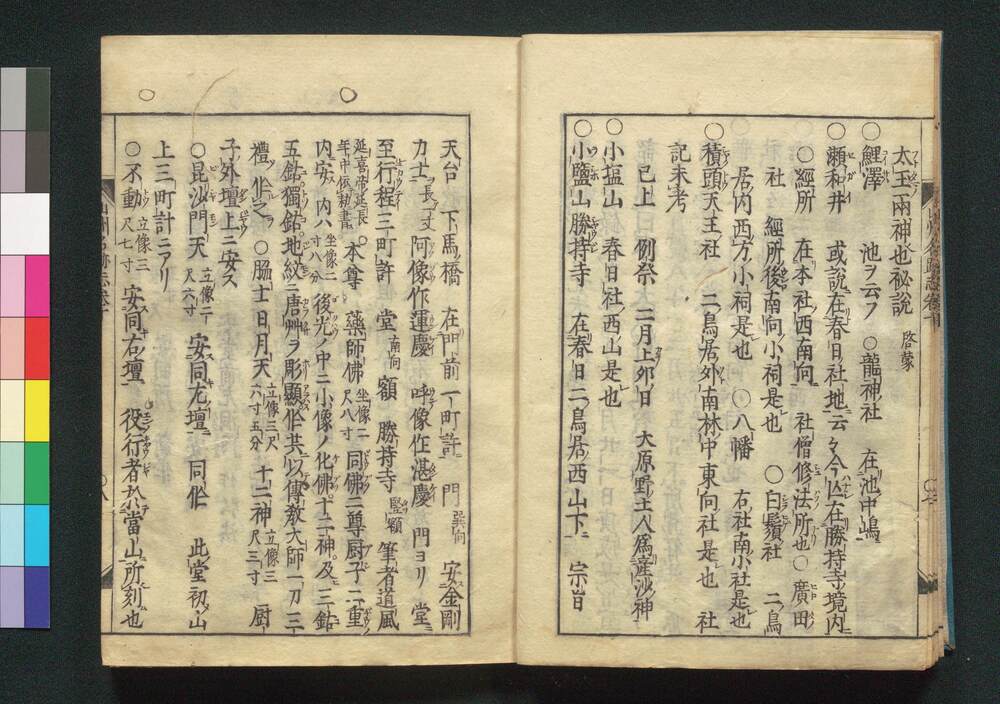 太玉兩神也秘説 啓蒙
○鯉澤 池ヲ云フ ○龍神社 在池中嶋
○瀬和井 或説在春日社地云々今亾在勝持寺境内
○經所 在本社西南向 社僧修法所也 ○廣田
社 經所後南向小祠是也 ○白鬚社 二鳥
居内西方小祠是也 ○八幡 右社南小社是也
○積頭天王社 二鳥居外南林中東向社是也 社
記未考
已上 例祭 二月上卯日 大原野土人為産沙神
○小塩山 春日社西山是也
○小鹽山勝持寺 在春日二鳥居西山下 宗旨
天台 下馬橋 在門前一町許 門 巽向 安金剛
力士 長一丈 阿像作運慶 呼像作湛慶 門ヨリ堂
至行程三町許 堂 南向 額 勝持寺 竪額 筆者道風
延喜帝延長年中依勅書 ○本尊 藥師佛 坐像二尺八寸 同佛二尊厨子二重
内安 内八 坐像二寸八分 後光ノ中ニ小像ノ化佛十二神及三鈷
五鈷獨鈷地紋ニ唐艸ヲ彫顯作共以傳教大師一刀三
禮作之 ○脇士日月天 立像三尺六寸五分 十二神 立像三尺三寸 厨
子外壇上ニ安ス
○毘沙門天 立像二尺六寸 安同尤壇 同作 此堂初山
上三町計ニアリ
○不動 立像三尺七寸 安同右壇 役行者於當山所刻也